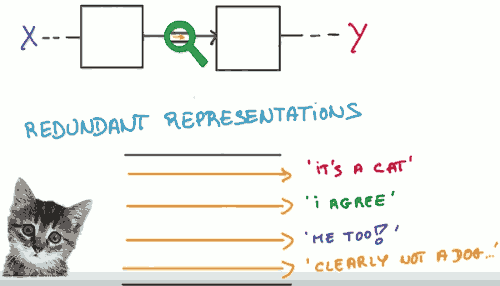 X
Y
REDUNDANT REPRESENTATIONS
'iT'S A CAT'
'i AGREE'
'ME TOO!'
'CLEARLY NOT A DOG...'